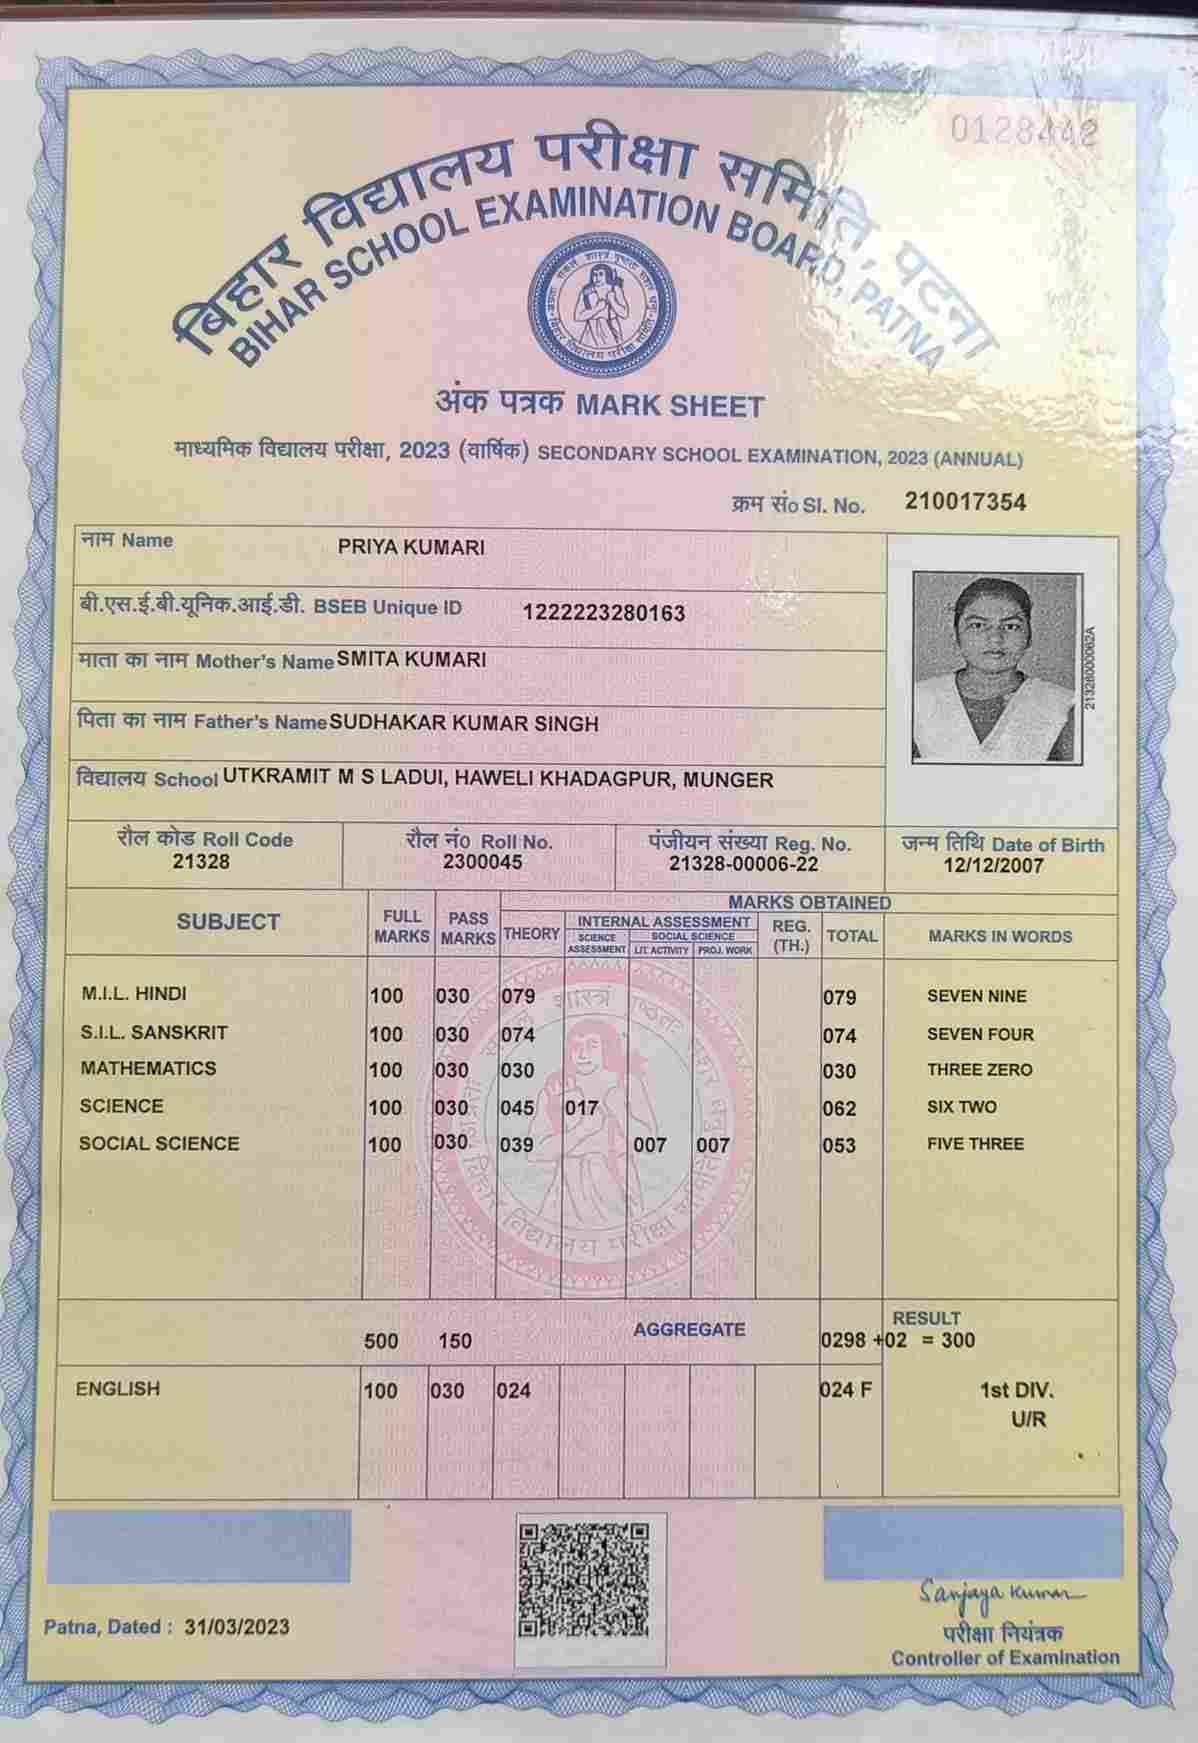 0128442
बिहार विद्यालय परीक्षा समिति, पटना
BIHAR SCHOOL EXAMINATION BOARD, PATNA
अंक पत्रक MARK SHEET
माध्यमिक विद्यालय परीक्षा, 2023 (वार्षिक) SECONDARY SCHOOL EXAMINATION, 2023 (ANNUAL)
क्रम सं० Sl. No. 210017354
नाम Name PRIYA KUMARI
बी.एस.ई.बी.यूनिक.आई.डी. BSEB Unique ID 1222223280163
माता का नाम Mother's Name SMITA KUMARI
पिता का नाम Father's Name SUDHAKAR KUMAR SINGH
विद्यालय School UTKRAMIT M S LADUI, HAWELI KHADAGPUR, MUNGER
21328000062A
रौल कोड Roll Code रौल नं० Roll No. पंजीयन संख्या Reg. No. जन्म तिथि Date of Birth
21328 2300045 21328-00006-22 12/12/2007
SUBJECT FULL MARKS PASS MARKS MARKS OBTAINED
THEORY INTERNAL ASSESSMENT REG. (TH.) TOTAL MARKS IN WORDS
SCIENCE ASSESSMENT SOCIAL SCIENCE
LIT. ACTIVITY PROJ. WORK
M.I.L. HINDI 100 030 079 079 SEVEN NINE
S.I.L. SANSKRIT 100 030 074 074 SEVEN FOUR
MATHEMATICS 100 030 030 030 THREE ZERO
SCIENCE 100 030 045 017 062 SIX TWO
SOCIAL SCIENCE 100 030 039 007 007 053 FIVE THREE
बिहार विद्यालय परीक्षा समिति
RESULT
500 150 AGGREGATE 0298 +02 = 300
ENGLISH 100 030 024 024 F 1st DIV.
U/R
Sanjaya Kumar
Patna, Dated : 31/03/2023
परीक्षा नियंत्रक
Controller of Examination